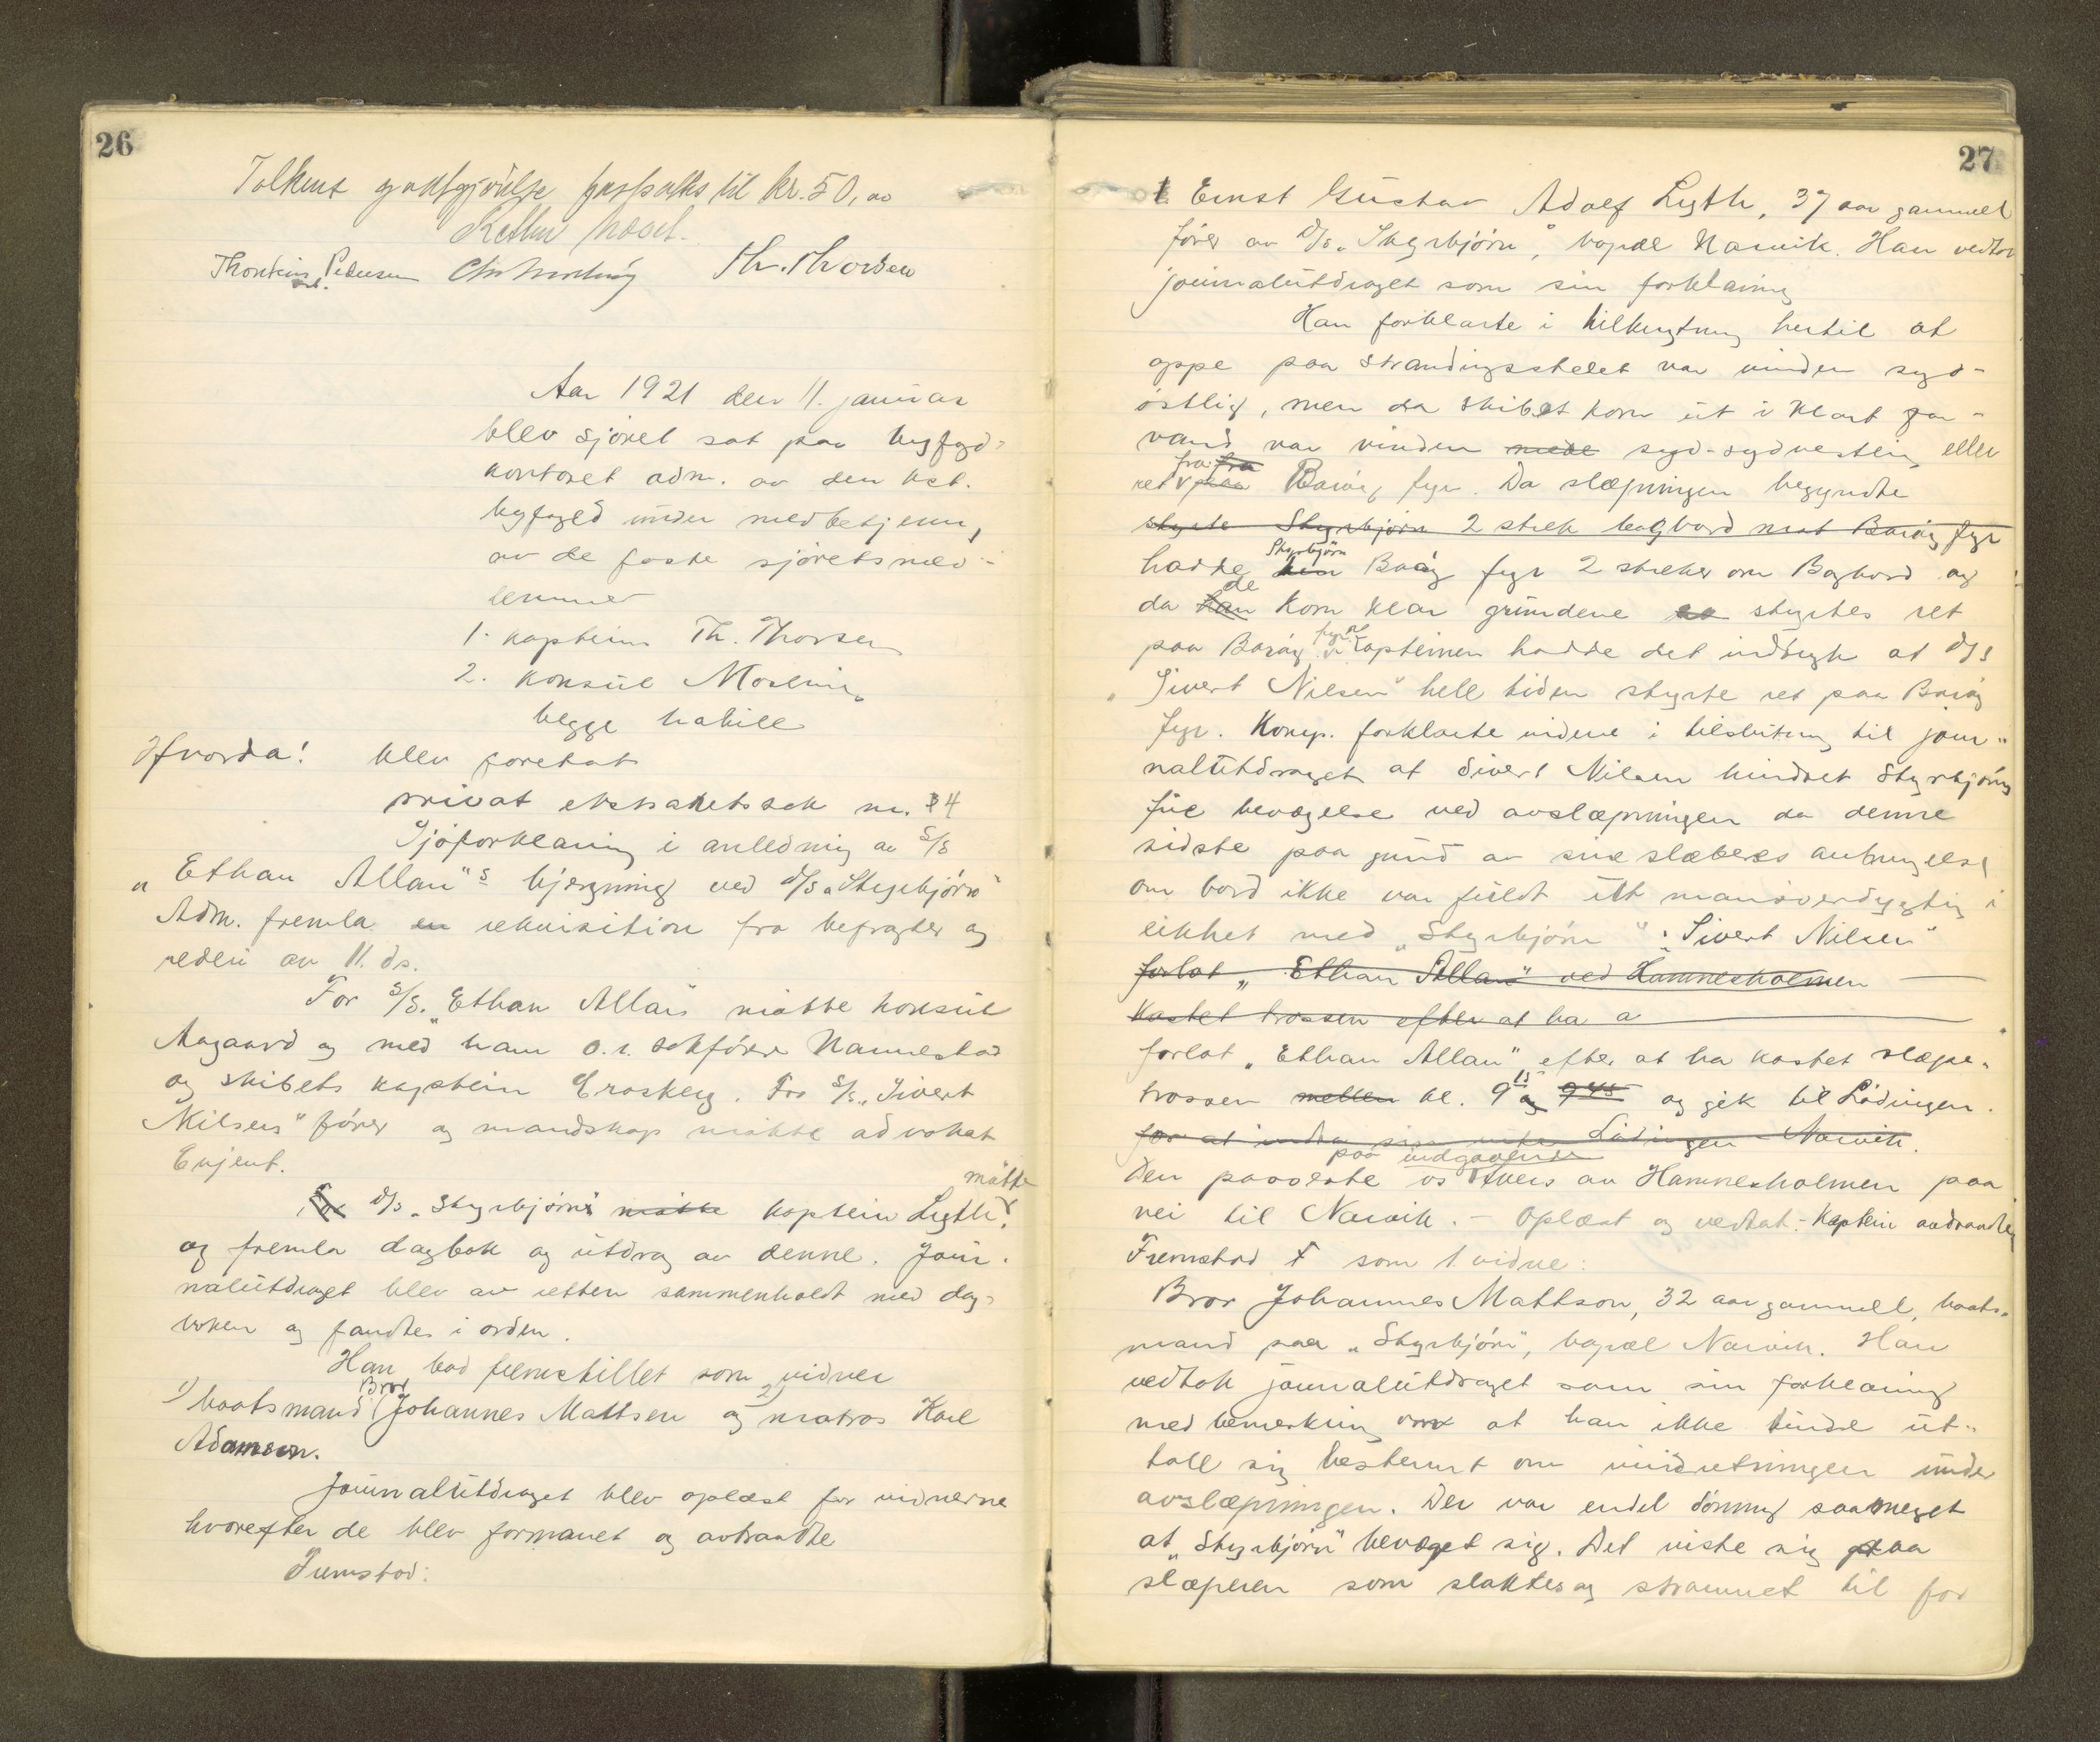 26
Tolkens godtgjörelse fastsattes til kr. 50,00
Retten hævet.
Thorstein Pedersen Th. Thorsen
Aar 1921 den 11. januar
blev sjöret sat paa byfogd-
kontoret adm. av den kst.
byfogd under medbetjening
av de faste sjöretsmed-
lemmer
1. kaptein Th. Thorsen
2. konsul Mosling
begge habile
Hvorda! blev foretat
privat ekstraretssak nr. 4
Sjöforklaring i anledning av S/S
"Ethan Allan"s bjergning ved D/S "Styrbjörn"
Adm. fremla en rekvisition fra befragter og
rederi av 11. ds.
For S/S. "Ethan Allan" mötte konsul
Aagaard og med ham o.r. sakförer Nannestad
og skibets kaptein Eroskey. For S/S. "Sivert
Nilsen" förer og mandskap mötte advokat
Evjent.
For D/S "Styrbjörn" mötte kaptein Lyth mötte
og fremla dagbok og utdrag av denne. Jour-
nalutdraget blev av retten sammenholdt med dag-
boken og fandtes i orden.
Han bad fremstillet som vidner
1) baatsmand Bror Johannes Mattsen og 2) matros Karl
Adamsen.
Journalutdraget blev oplæst for vidnerne
hvorefter de blev formanet og avtraadte
Fremstod:
27
1 Ernst Gustav Adolf Lyth, 37 aar gammel
förer av D/S "Styrbjörn", bopæl Narvik. Han vedtok
journalutdraget som sin forklaring
Han forklarte i tilknytning hertil at
oppe paa strandingsstedet var vinden syd-
östlig, men da skibet kom ut i klart far-
vand var vinden mede syd-sydvestlig, eller
ret fra fra paa Baröy fyr. Da slæpningen begyndte
styrte Styrbjörn 2 strek bagbord mot Baröy fyr
hadde Styrbjörn den Baröy fyr 2 streker om Bagbord og
da de han kom klar grundene styrtes ret
paa Baröy fyr. Kapteinen hadde det indtryk at D/S
"Sivert Nilsen" hele tiden styrte ret paa Baröy
fyr. Komp. forklarte videre i tilslutning til jour-
nalutdraget at Sivert Nilsen hindret Styrbjörns
frie bevægelse ved avslæpningen da denne
sidste paa grund av sine slæberes anbringelse
om bord ikke var fuldt ut manöverdygtig i
likhet med "Styrbjörn". "Sivert Nilsen"
forlot "Ethan Allan" ved Hamnesholmen
Kastet trossen efter at ha a
forlot "Ethan Allan" efter at ha kastet slæpe-
trossen mellem kl. 9 15 og 9 45 og gik til Lödingen.
for at Lödingen - Narvik.
Den passerte os paa indgaaende tvers av Hamnesholmen paa
vei til Narvik. - Oplæst og vedtat. - Kaptein avtraadte
Fremstod som 1. vidne:
Bror Johannes Mattson, 32 aar gammel, baats-
mand paa "Styrbjörn", bopæl Narvik. Han
vedtok journalutdraget som sin forklaring
med bemerkning om at han ikke kunde ut-
tale sig bestemt om vindretningen under
avslæpningen. Der var endel dönning saa meget
at "Styrbjörn" bevæget sig. Det viste sig paa
slæperen som slaktes og strammet til for